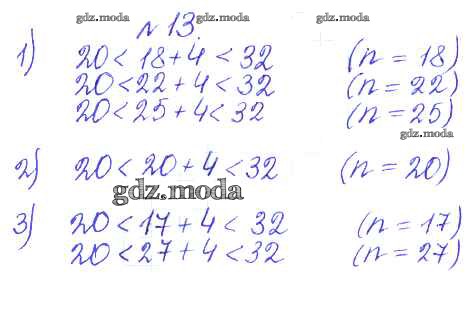 gdz.moda gdz.moda gdz.moda
№13.
1) 20 < 18 + 4 < 32 (n = 18)
20 < 22 + 4 < 32 (n = 22)
20 < 25 + 4 < 32 (n = 25)
gdz.moda
2) 20 < 20 + 4 < 32 (n = 20)
gdz.moda
3) 20 < 17 + 4 < 32 (n = 17)
20 < 27 + 4 < 32 (n = 27)